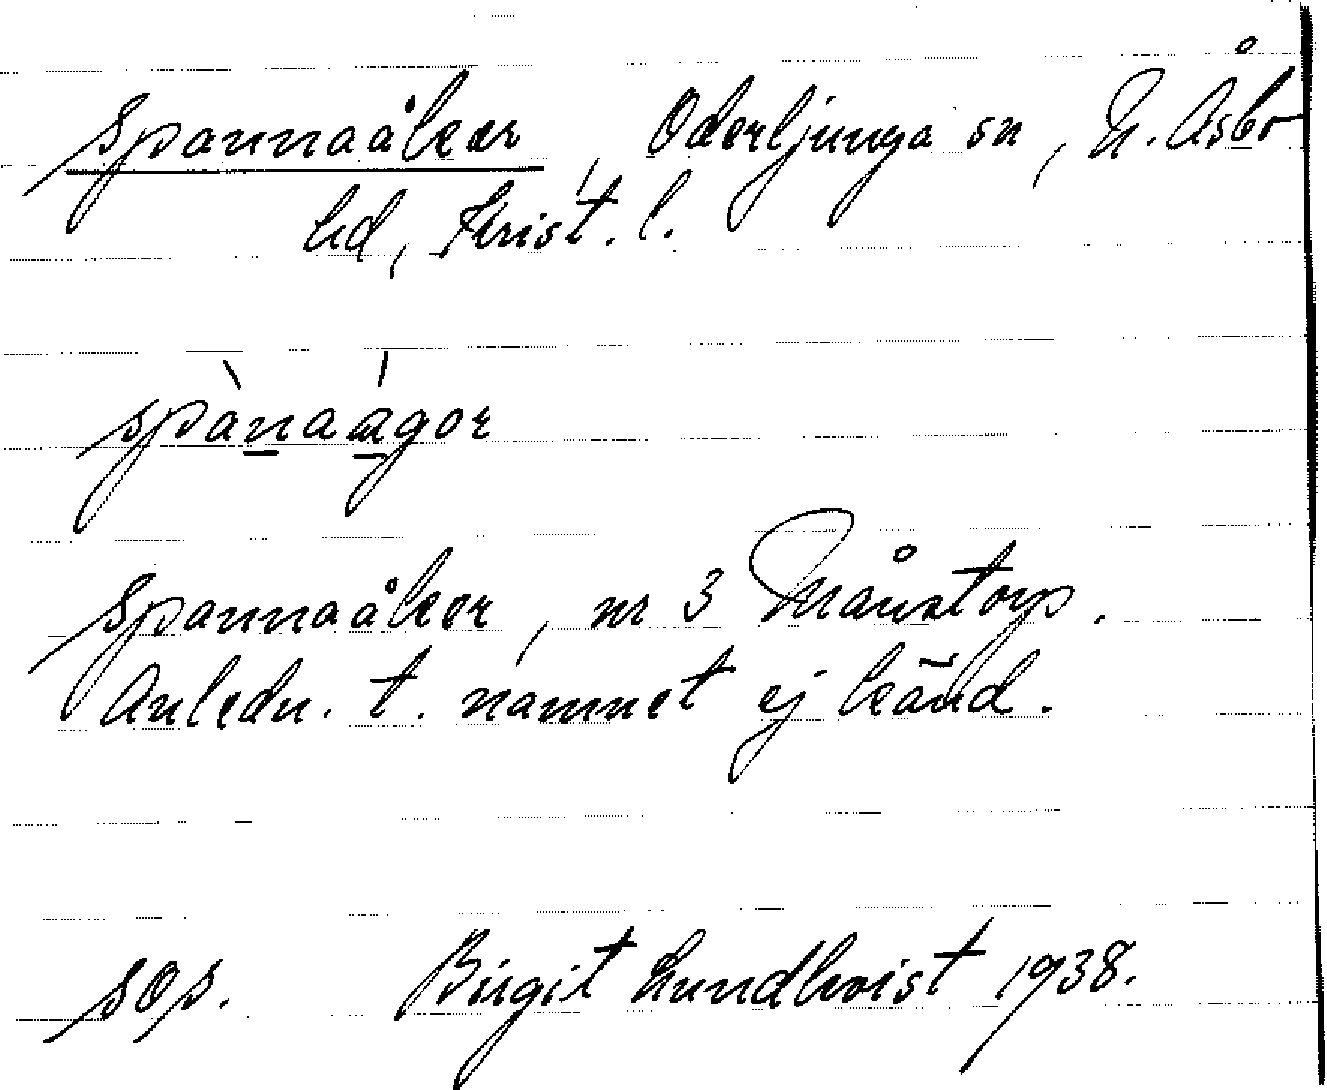 Spannaåker, Oderljunga sn, N. Åsbo
hd, Krist. l.
spànaágor
Spannaåker, nr 3 Månstorp.
Anledn. t. namnet ej känd.
sOs. Birgit Lundkvist 1938.